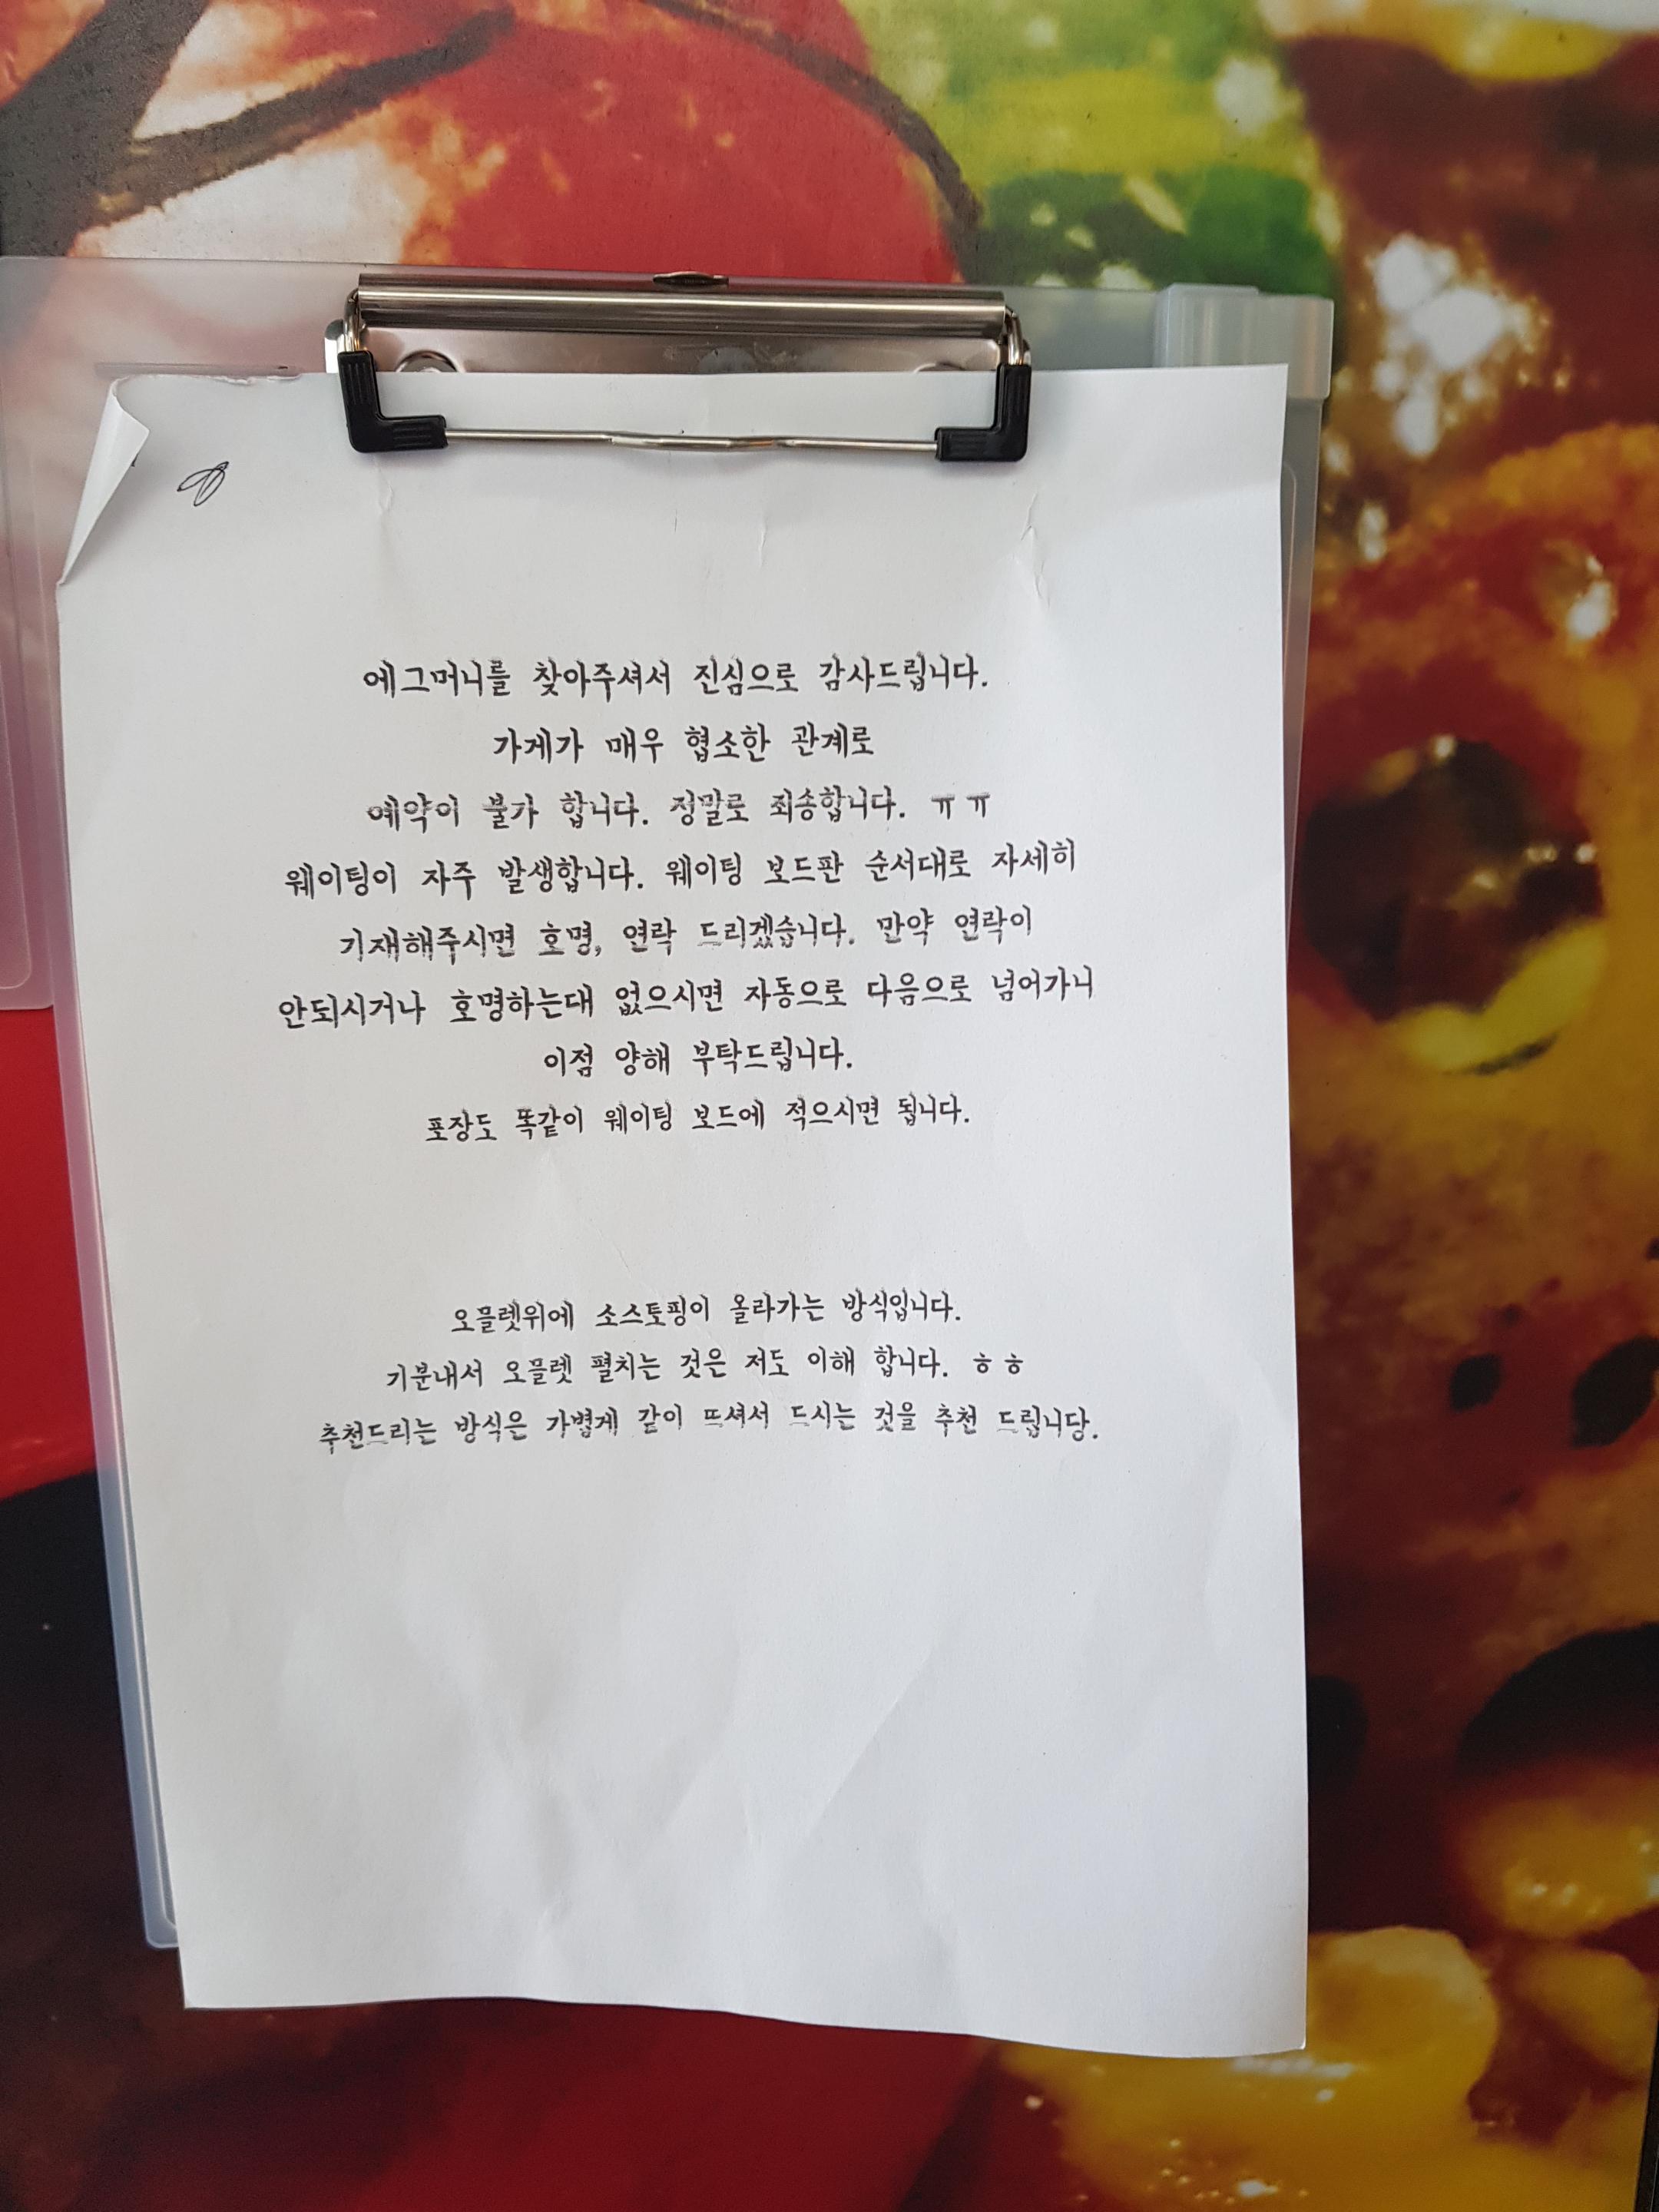 에그머니를 찾아주셔서 진심으로 감사드립니다.
가게가 매우 협소한 관계로
예약이 불가 합니다. 정말로 죄송합니다. ㅠㅠ
웨이팅이 자주 발생합니다. 웨이팅 보드판 순서대로 자세히
기재해주시면 호명, 연락 드리겠습니다. 만약 연락이
안되시거나 호명하는대 없으시면 자동으로 다음으로 넘어가니
이점 양해 부탁드립니다.
포장도 똑같이 웨이팅 보드에 적으시면 됩니다.
오믈렛위에 소스토핑이 올라가는 방식입니다.
기분내서 오믈렛 펼치는 것은 저도 이해 합니다. ㅎㅎ
추천드리는 방식은 가볍게 같이 뜨셔서 드시는 것을 추천 드립니당.